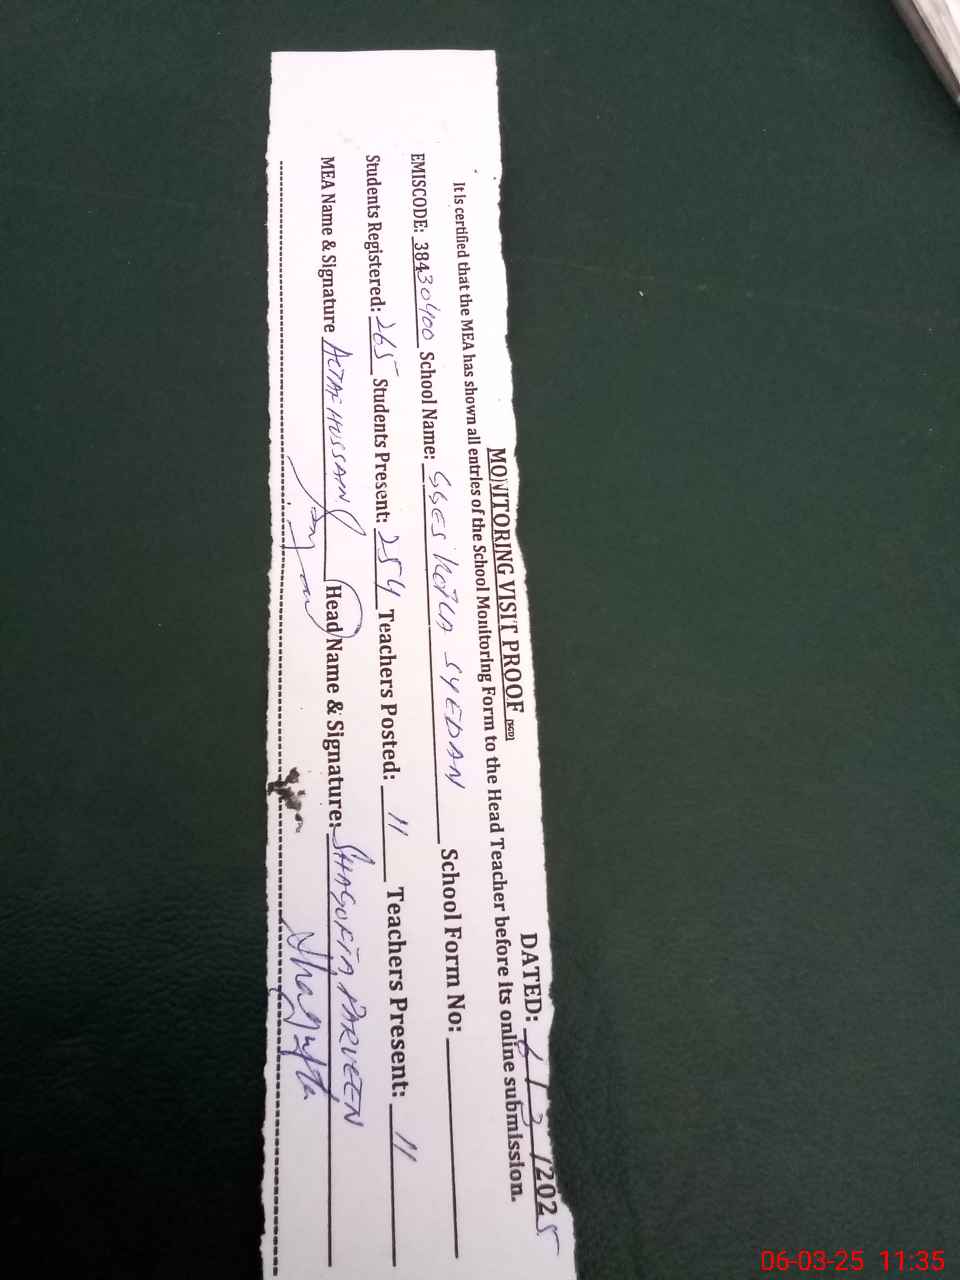 MONITORING VISIT PROOF (SGD)
DATED: 6/3/2025
It is certified that the MEA has shown all entries of the School Monitoring Form to the Head Teacher before its online submission.
EMISCODE: 38430400 School Name: GGES KOTLA SYEDAN School Form No:
Students Registered: 265 Students Present: 254 Teachers Posted: 11 Teachers Present: 11
MEA Name & Signature ALTAF HUSSAIN Head Name & Signature: SHAGUFTA PARVEEN
Shagufta
06-03-25 11:35